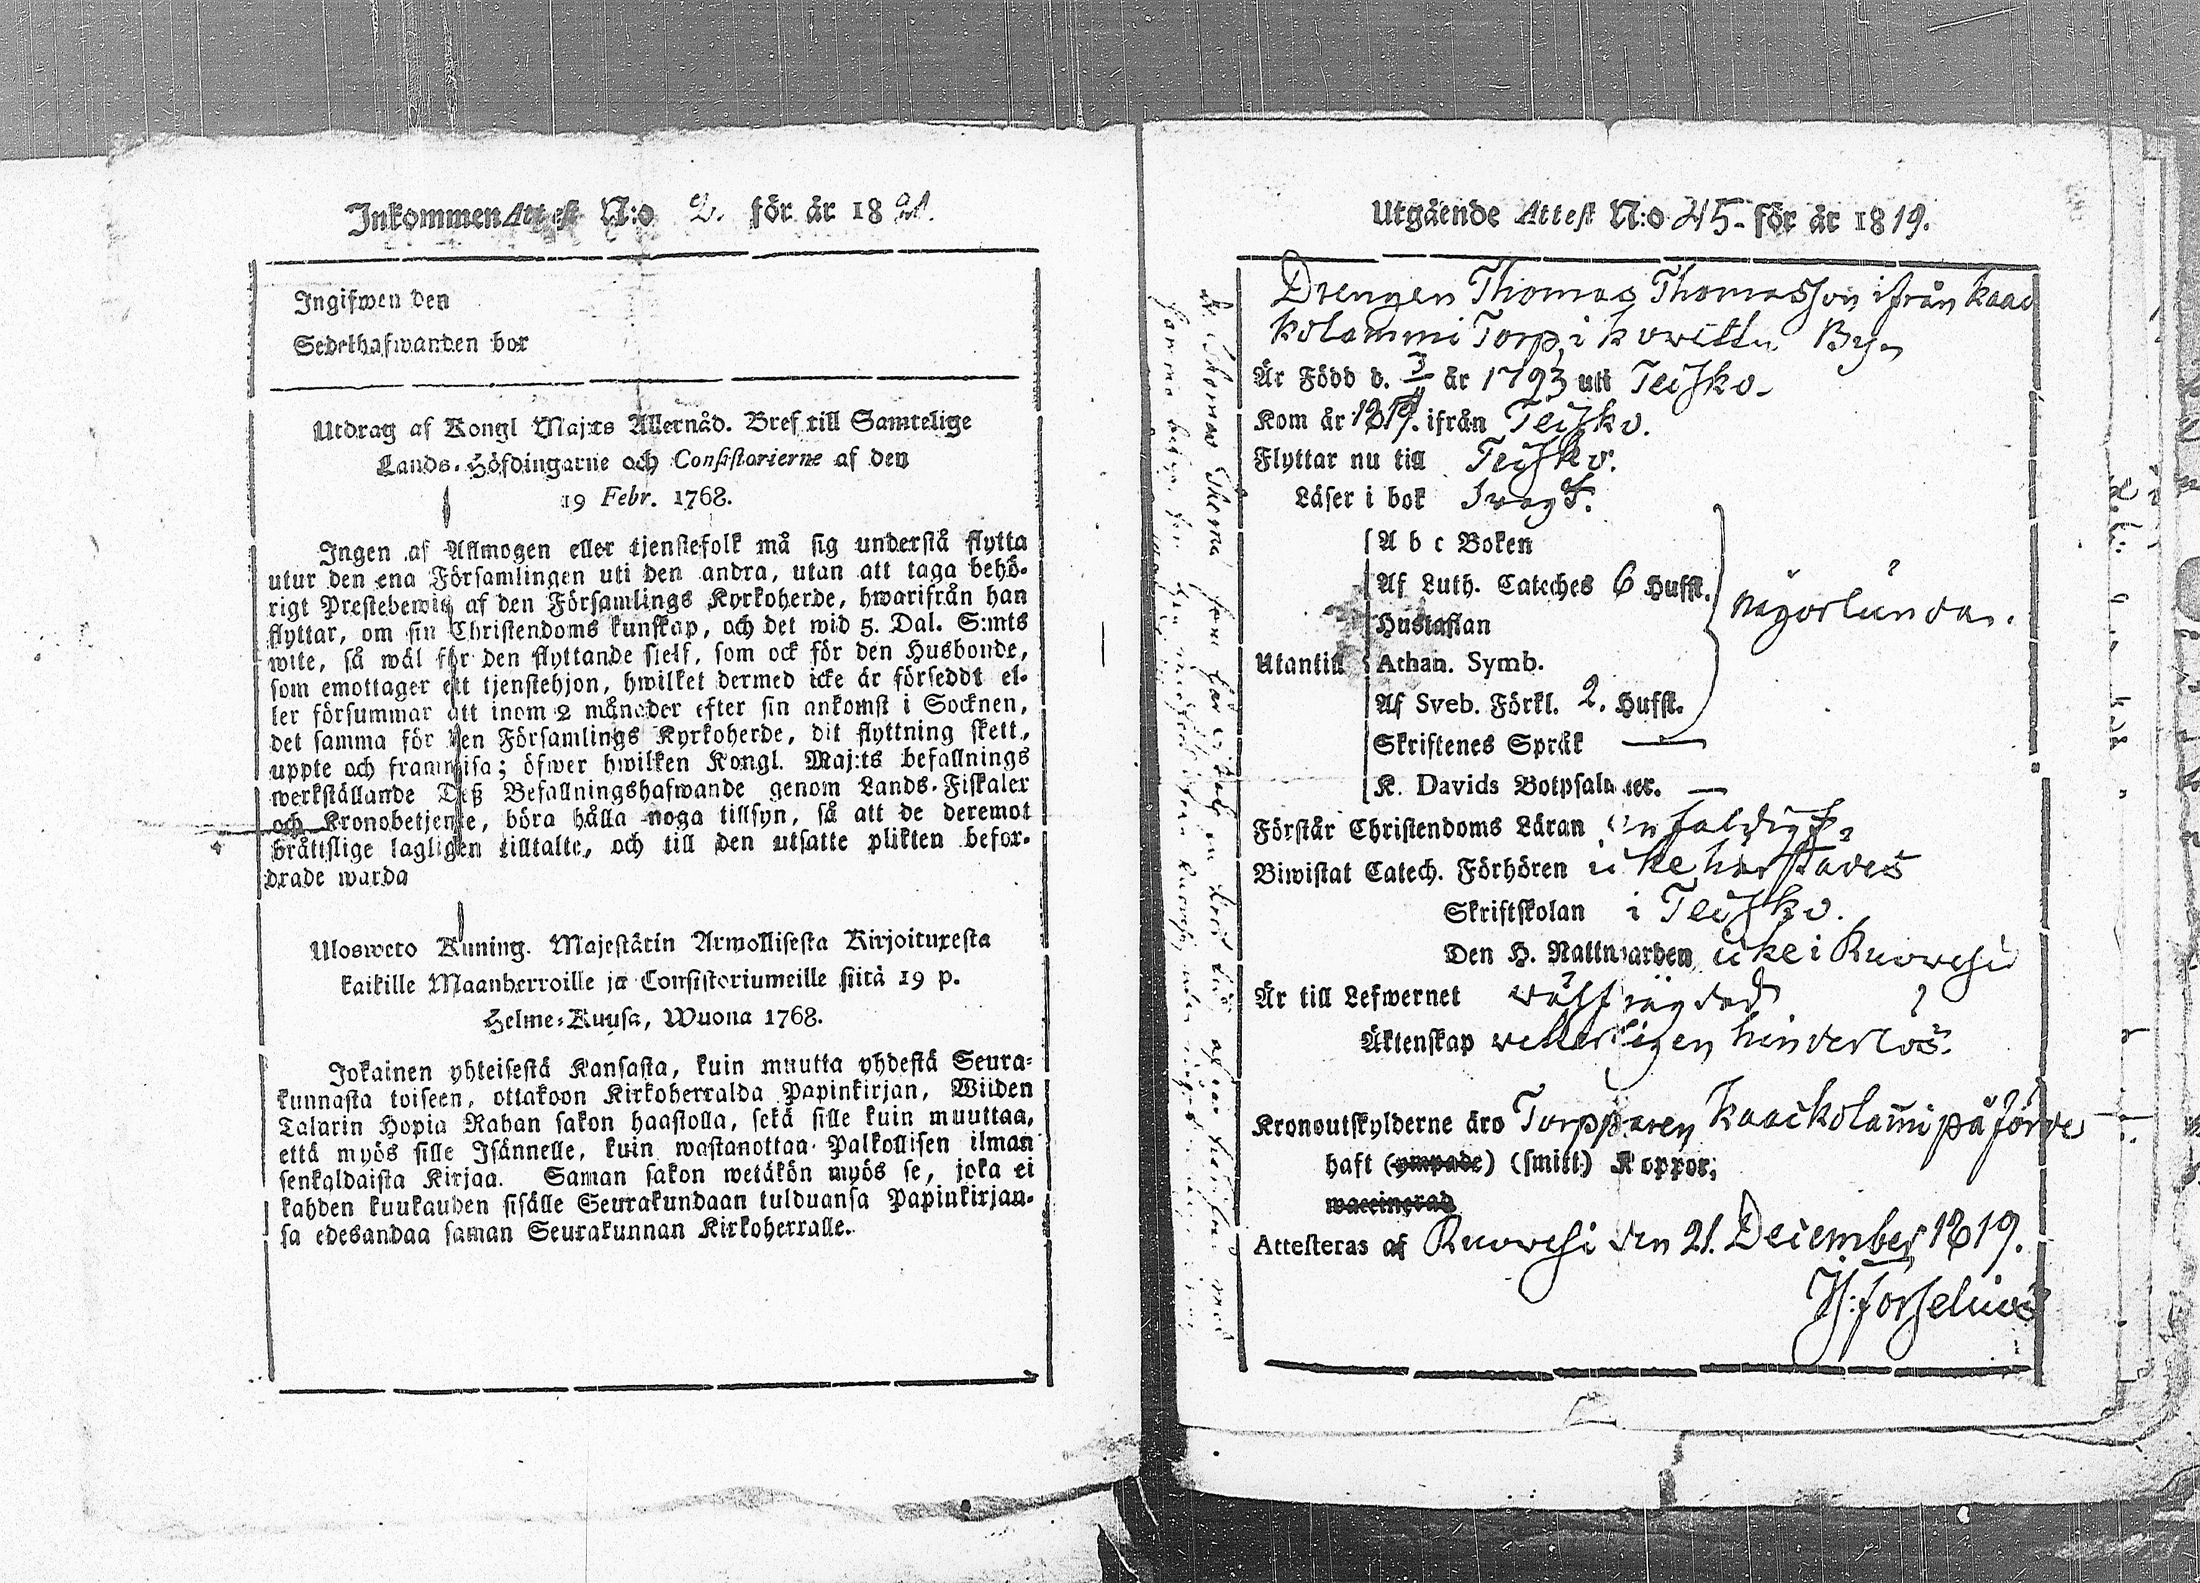 Inkommen Attest N:o 2. för år 1821.
Ingifwen den
Sedelhafwanden bor
Utdrag af Kongl Maj:ts Allernåd. Bref till Samtelige
Lands-Höfdingarne och Consistorierne af den
19 Febr. 1768.
Ingen af Allmogen eller tjenstefolk må sig understå flytta
utur den ena Församlingen uti den andra, utan att taga behö-
rigt Prestebewis af den Församlings Kyrkoherde, hwarifrån han
flyttar, om sin Christendoms kunskap, och det wid 5. Dal. S:mts
wite, så wäl för den flyttande sjelf, som ock för den Husbonde,
som emottager ett tjenstehjon, hwilket dermed icke är förseddt el-
ler försummar att inom 2 månader efter sin ankomst i Socknen,
det samma för den Församlings Kyrkoherde, dit flyttning skett,
uppte och framwisa; öfwer hwilken Kongl. Maj:ts befallnings
werkställande Deß Befallningshafwande genom Lands-Fiskaler
och Kronobetjente, böra hålla noga tillsyn, så att de deremot
bråttslige lagligen tilltalte, och till den utsatte plikten befor-
drade warda
Ulosweto Kuning. Majestätin Armollisesta Kirjoituxesta
kaikille Maanherroille ja Consistoriumeille siitä 19 p.
Helme-Kuusa, Wuona 1768.
Jokainen yhteisestä Kansasta, kuin muutta yhdestä Seura-
kunnasta toiseen, ottakoon Kirkoherralda Papinkirjan, Wiiden
Talarin Hopia Rahan sakon haastolla, sekä sille kuin muuttaa,
että myös sille Isännelle, kuin wastanottaa Palkollisen ilman
senkaldaista Kirjaa. Saman sakon wetäkön myös se, joka ei
kahden kuukauden sisälle Seurakundaan tulduansa Papinkirjan-
sa edesandaa saman Seurakunnan Kirkoherralle.
Utgående Attest N:o 45. för år 1819.
Drengen Thomas Thomasson ifrån Kaac
kolammi Torp i Kowettu By
Är Född d. 3/11 år 1793 uti Teisko
Kom år 1819. ifrån Teisko.
Flyttar nu till Teisko.
Läser i bok swagt.
A b c Boken
Af Luth. Cateches 6 Hufst.
Hustaflan
någorlunda.
Utantill Athan. Symb.
Af Sveb. Förkl. 2. Hufst.
Skriftenes Språk —
K. Davids Botpsalmer. —
Förstår Christendoms Läran enfaldigt
Biwistat Catech. Förhören icke härstädes
Skriftskolan i Teisko.
Den H. Nattwarden icke i Ruowesi
Är till Lefwernet wälfrägdad
Äktenskap wetterligen hinderlös.
Kronoutskylderne äro Torpparen Kaackolammi påförde
haft (ympade) (smitt) Koppor,
waccinerad
Attesteras af Ruowesi den 21. December 1819.
Js: Forselius